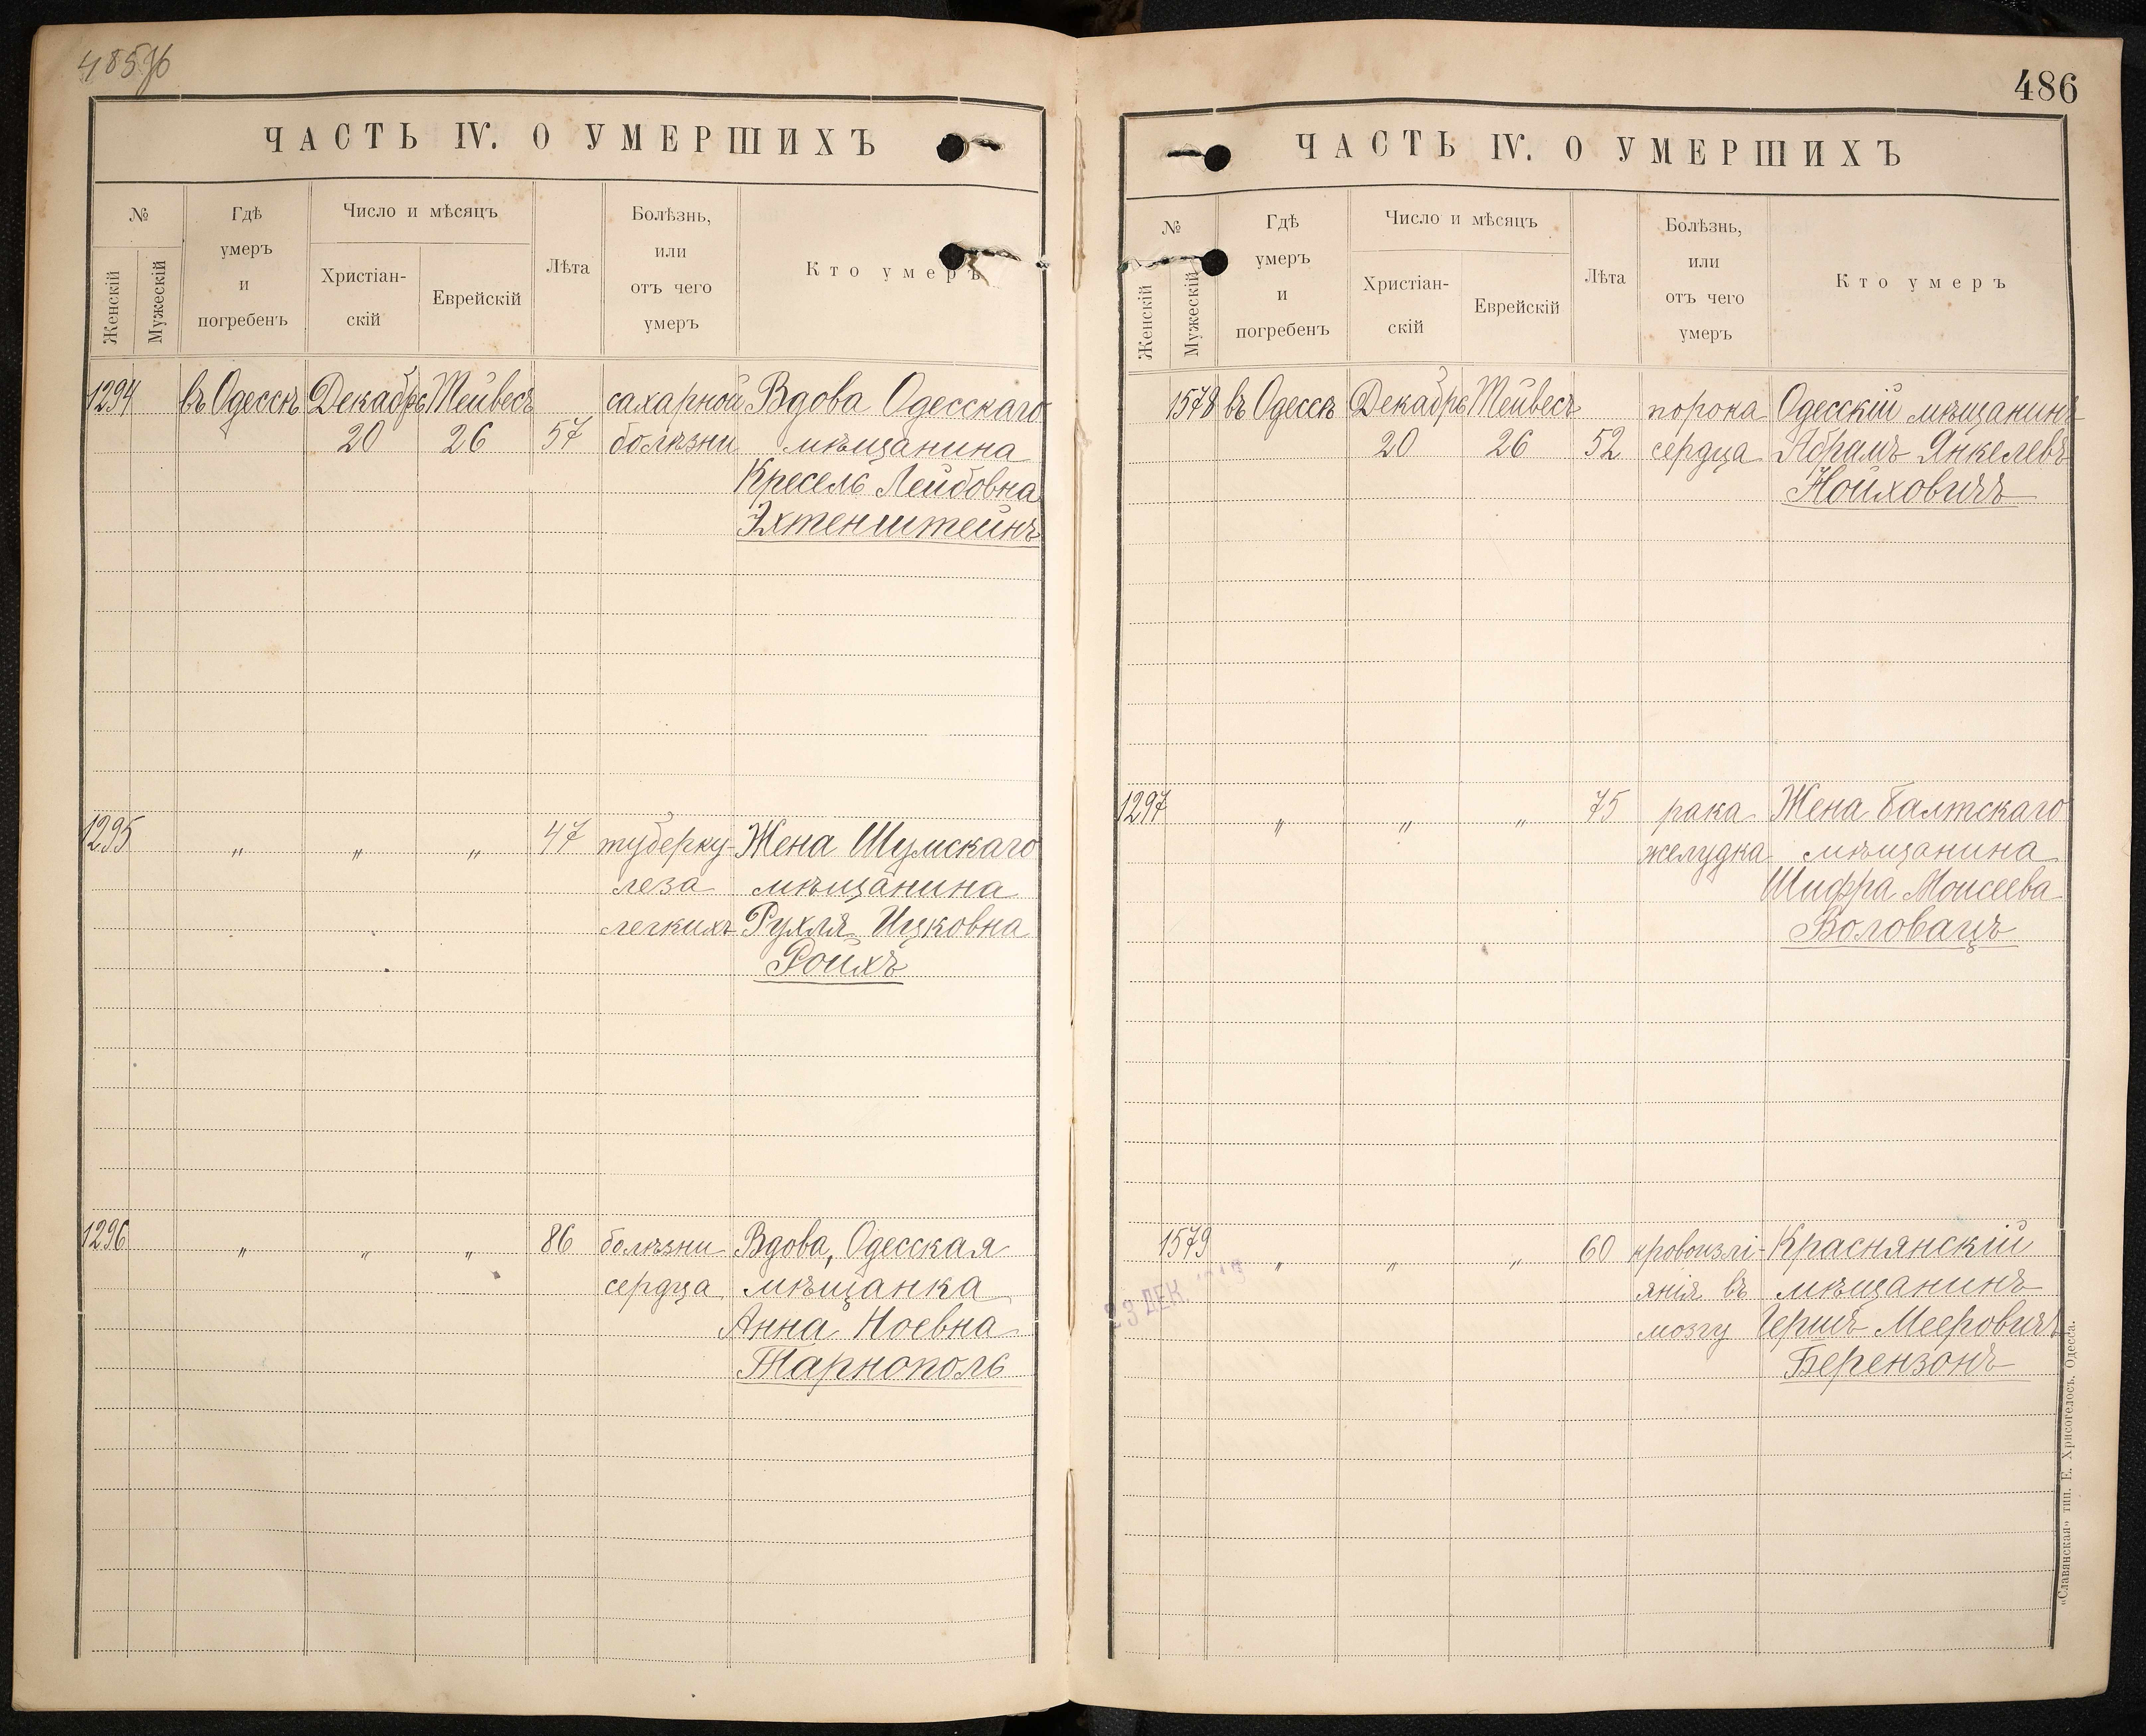 485об
ЧАСТЬ IV. О УМЕРШИХЪ
№
Женскій
Мужескій
Гдѣ
умеръ
и
погребенъ
Число и мѣсяцъ
Христіан-
скій
Еврейскій
Лѣта
Болѣзнь,
или
отъ чего
умеръ
Кто умеръ
1294 въ Одессѣ Декабрь Тейвесъ сахарной Вдова Одесскаго
20 26 57 болѣзни мѣщанина
Кресель Лейбовна
Эхтенштейнъ
1295 „ „ „ 47 туберку- Жена Шумскаго
леза мѣщанина
легкихъ Рухля Ицковна
Ройхъ
1296 „ „ „ 86 болѣзни Вдова, Одесская
сердца мѣщанка
Анна Ноевна
Тарнополь
486
ЧАСТЬ IV. О УМЕРШИХЪ
№
Женскій
Мужескій
Гдѣ
умеръ
и
погребенъ
Число и мѣсяцъ
Христіан-
скій
Еврейскій
Лѣта
Болѣзнь,
или
отъ чего
умеръ
Кто умеръ
1578 въ Одессѣ Декабрь Тейвесъ порока Одесскій мѣщанинъ
20 26 52 сердца Абрамъ Янкелевъ
Нойховичъ
1297 „ „ „ 75 рака Жена Балтскаго
желудка мѣщанина
Шифра Моисеева
Воловацъ
1579 „ „ „ 60 кровоизлі- Краснянскій
янія въ мѣщанинъ
мозгу Гершъ Мееровичъ
Берензонъ
23 ДЕК
„Славянская" тип. Е. Хрисогелосъ. Одесса.